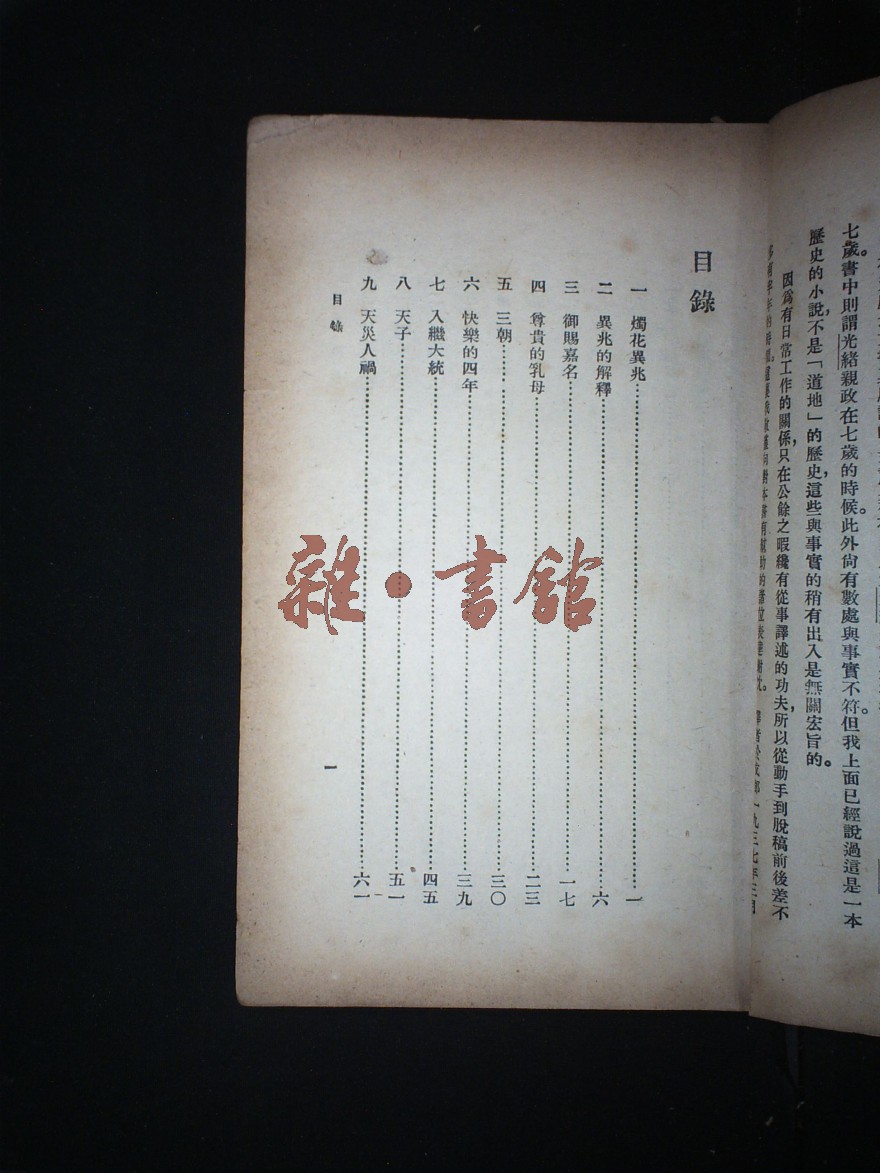 七歲。書中則謂光緒親政在七歲的時候。此外尙有數處與事實不符。但我上面已經說過這是一本
歷史的小說，不是「道地」的歷史，這些與事實的稍有出入是無關宏旨的。
因爲有日常工作的關係，只在公餘之暇纔有從事譯述的功夫，所以從動手到脫稿前後差不
目錄
一 燭花異兆……一
二 異兆的解釋……六
三 御賜嘉名……一七
四 尊貴的乳母……二三
五 三朝……三〇
六 快樂的四年……三九
七 入繼大統……四五
八 天子……五一
九 天災人禍……六一
目錄
一
雜·書館